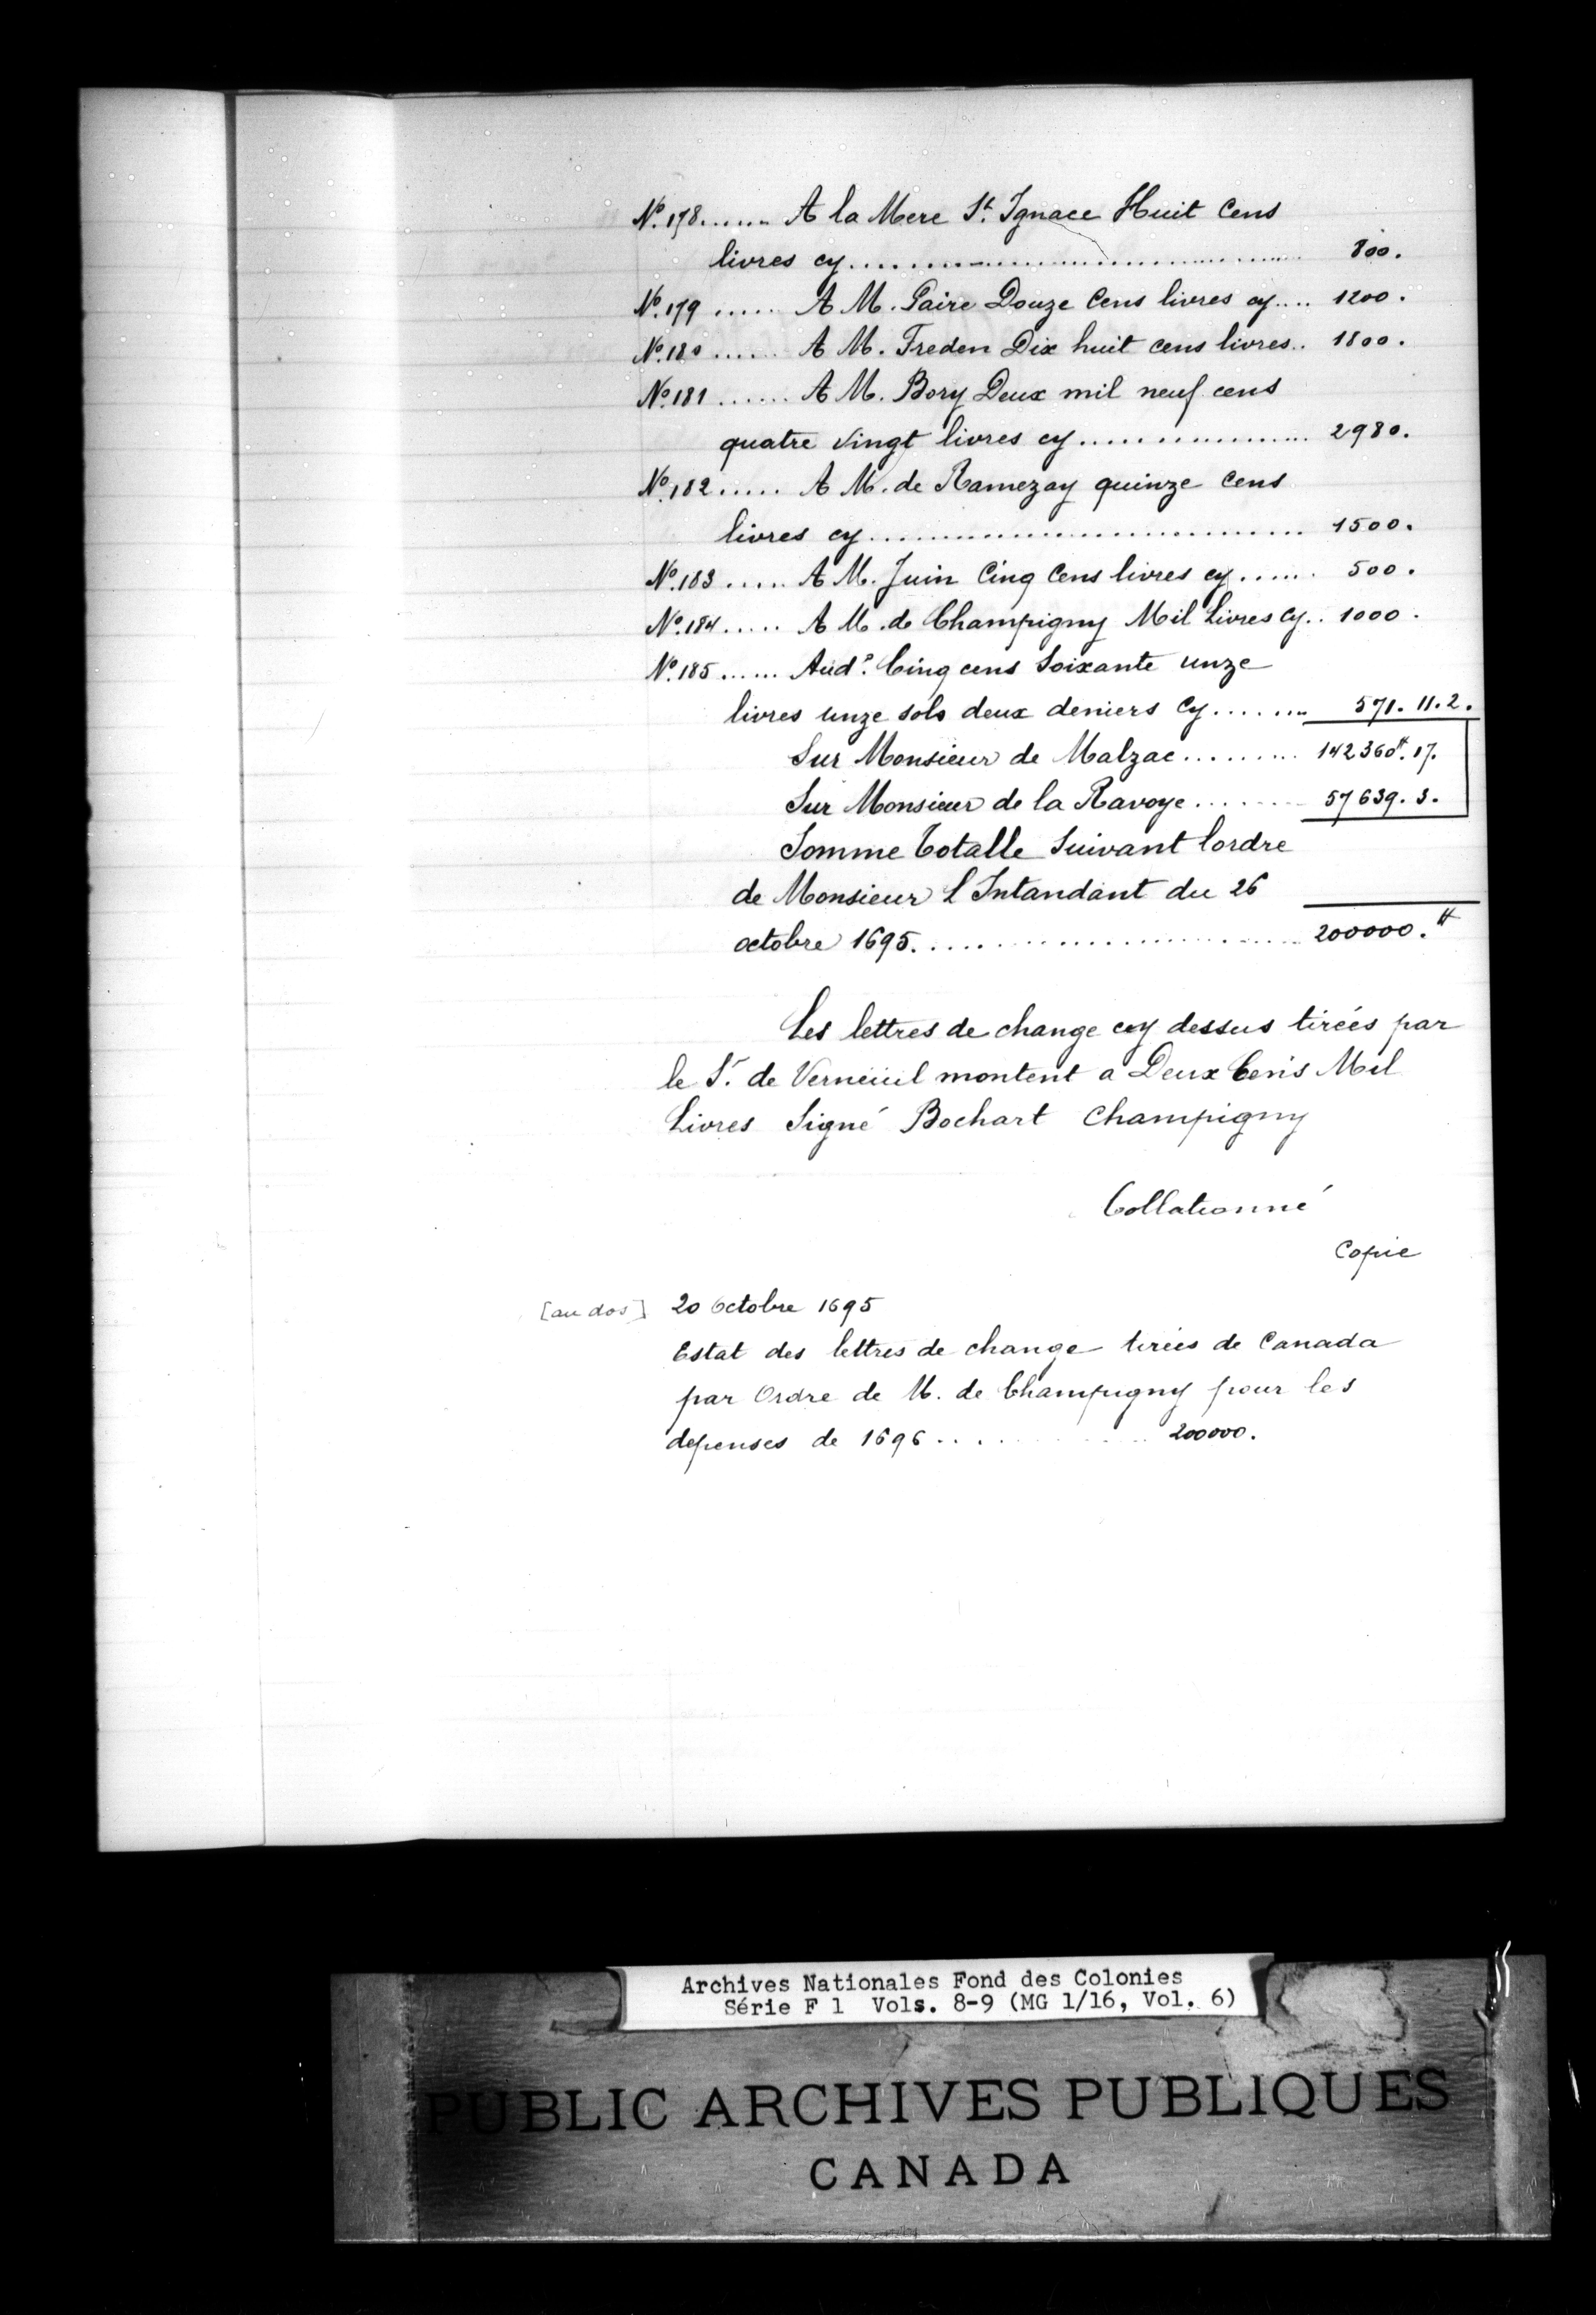 No. 178...... A la Mere St. Ignace Huit Cens
livres cy.................................... 800.
No. 179 ...... A M. Paire Douze Cens livres cy.... 1200.
No. 180 ...... A M. Freden Dix huit cens livres.. 1800.
No. 181 ...... A M. Bory Deux mil neuf cens
quatre vingt livres cy.................. 2980.
No. 182..... A M. de Ramezay quinze Cens
livres cy.............................. 1500.
No. 183 ..... A M. Juin Cinq Cens livres cy...... 500.
No. 184..... A M. de Champigny Mil Livres Cy.. 1000.
No. 185 ...... Aud. Cinq cens Soixante unze
livres unze sols deux deniers Cy........ 571. 11. 2.
Sur Monsieur de Malzac......... 142360tt. 17.
Sur Monsieur de la Ravoye........ 57639. 3.
Somme Totalle Suivant lordre
de Monsieur L Intandant du 26
octobre 1695........................... 200000.tt
Les lettres de change cey dessus tireés par
le Sr. de Verneüil montent a Deux Cens Mil
Livres Signé Bochart Champigny
Collationné
Copie
[au dos] 20 Octobre 1695
Estat des lettres de change tirées de Canada
par Ordre de M. de Champigny pour les
depenses de 1696............ 200000.
Archives Nationales Fond des Colonies
Série F 1 Vols. 8-9 (MG 1/16, Vol. 6)
PUBLIC ARCHIVES PUBLIQUES
CANADA